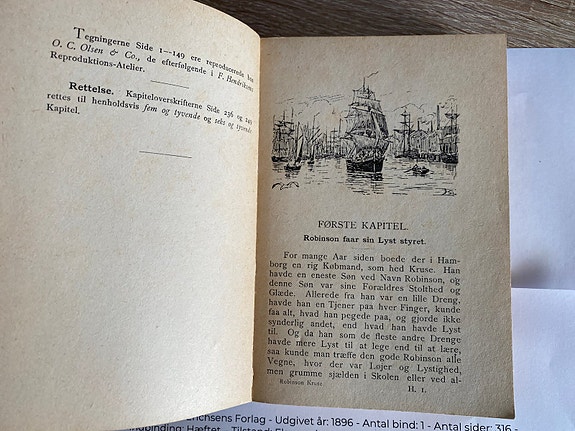 Tegningerne Side 1—149 ere reproducerede hos
O. C. Olsen & Co., de efterfølgende i F. Hendriksens
Reproduktions-Atelier.
Rettelse. Kapiteloverskrifterne Side 236 og 249
rettes til henholdsvis fem og tyvende og seks og tyvende
Kapitel.
FØRSTE KAPITEL.
Robinson faar sin Lyst styret.
For mange Aar siden boede der i Ham-
borg en rig Købmand, som hed Kruse. Han
havde en eneste Søn ved Navn Robinson, og
denne Søn var sine Forældres Stolthed og
Glæde. Allerede fra han var en lille Dreng,
havde han en Tjener paa hver Finger, kunde
faa alt, hvad han pegede paa, og gjorde ikke
synderlig andet, end hvad han havde Lyst
til. Og da han som de fleste andre Drenge
havde mere Lyst til at lege end til at lære,
saa kunde man træffe den gode Robinson alle
Vegne, hvor der var Løjer og Lystighed,
men grumme sjælden i Skolen eller ved al-
Robinson Kruse
H. 1.
richsens Forlag - Udgivet år: 1896 - Antal bind: 1 - Antal sider: 316 -
ndbinding: Hæftet - Tilstand: